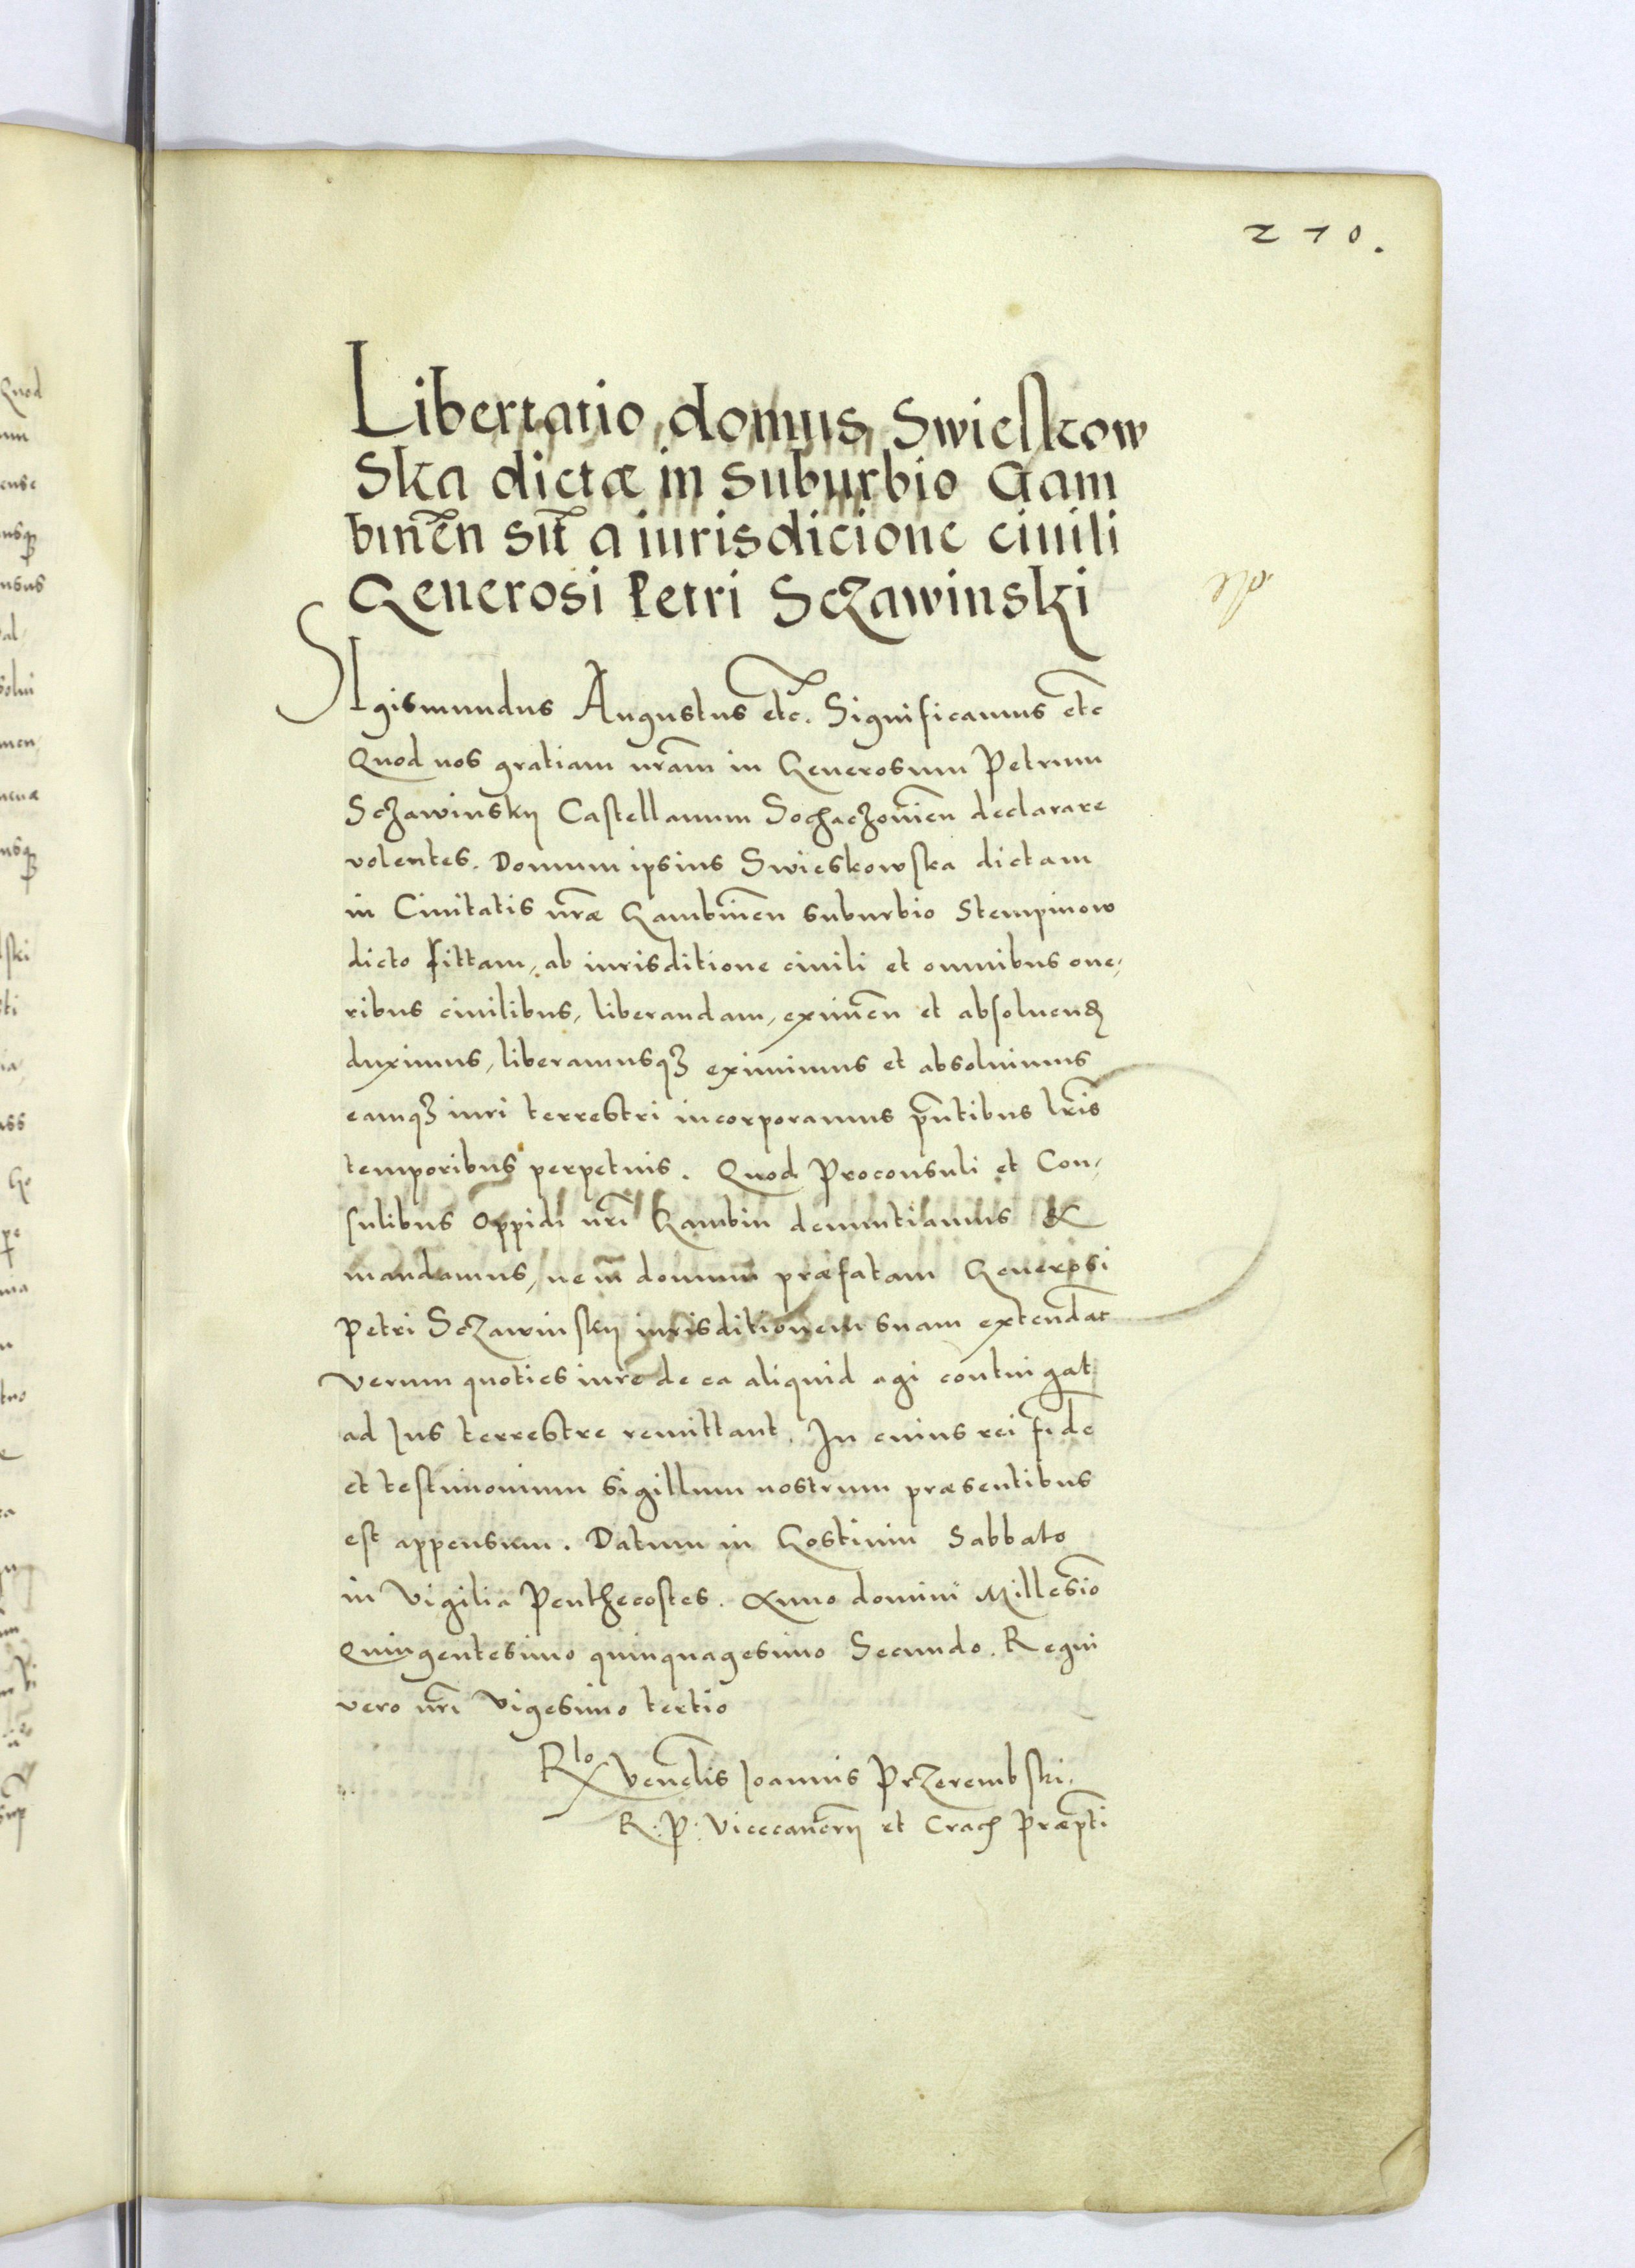 210.
Libertatio domus Swieskow
Ska dictæ in suburbio Gam
binēn sit̄ a iurisdicione ciuili
Generosi Petri Sczawinski
SIgismundus Augustus etc̄. Significamus etc̄
Quod nos gratiam nr̄am in Generosum Petrum
Sczawinskij Castellanum Sochaczowien̄ declarare
volentes. Domum ipsius Swieskowska dictam
in Ciuitatis nr̄æ Gambinēn suburbio Stempinow
dicto sittam, ab iurisditione ciuili et omnibus one,
ribus ciuilibus, liberandam, eximen̄ et absoluend
duximus, liberamusqꝫ eximimus et absoluimus
eamqꝫ iuri terrestri incorporamus pn̄tibus lr̄is
temporibus perpetuis. Quod Proconsuli et Con,
sulibus oppidi nr̄i Gambin denuntiamus &
mandamus, ne in̄ domum præfatam Generosi
Petri Sczawinskij iurisditionem suam extendat
verum quoties iure de ea aliquid agi contingat
ad Ius terrestre remittant. In cuius rei fide
et testimonium sigillum nostrum præsentibus
est appensum. Datum in Gostinin Sabbato
in Vigilia Penthecostes. Anno domini Millesīo
Quingentesimo quinquagesimo Secundo. Regni
vero nr̄i Vigesimo tertio
Rlo Venēlis Ioannis Przerembski.
R. P. Vicecancrij et Crach Præpti